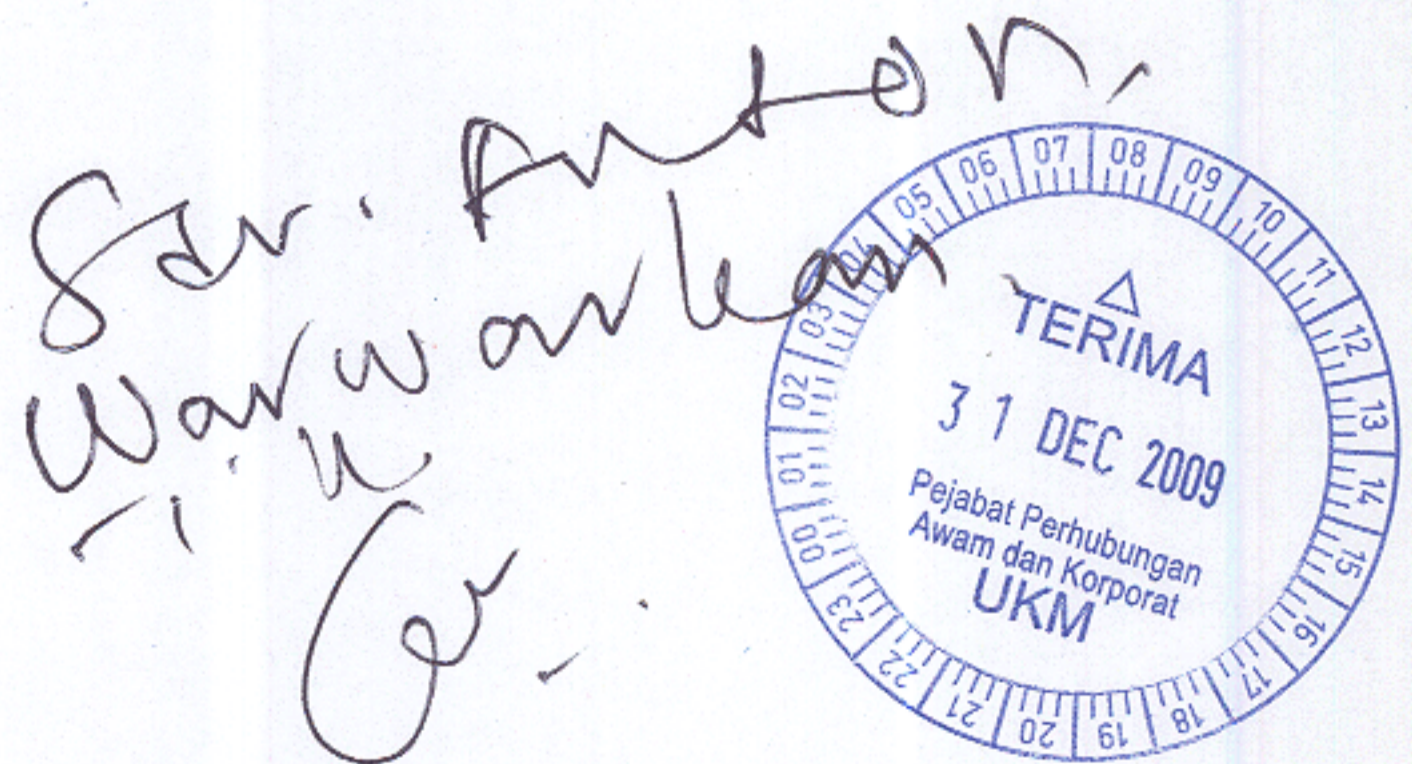 Sdr. Anton,
Warwarkan
T. K.
00 01 02 03 04 05 06 07 08 09 10 11 12 13 14 15 16 17 18 19 20 21 22 23
TERIMA
31 DEC 2009
Pejabat Perhubungan
Awam dan Korporat
UKM